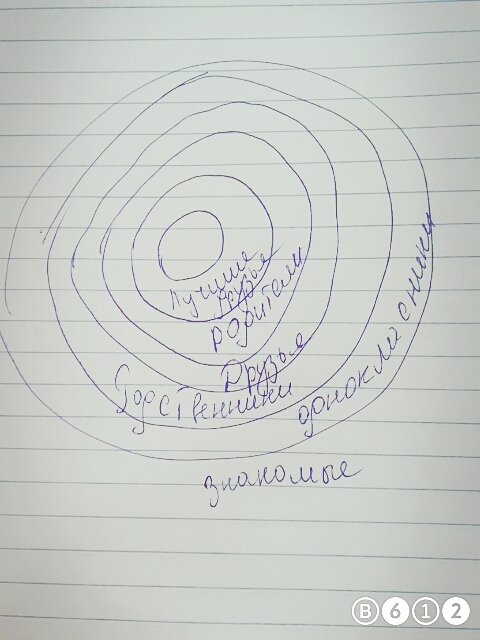 Лучшие
друзья
родители
Друзья
Родственники
однокла сники
знакомые
B612